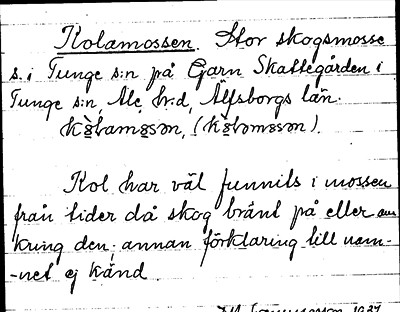 Kolamossen. Stor skogsmosse
s. i Tunge s:n på Garn Skattegården i
Tunge s:n, Ale h:d, Älfsborgs län.
Kol har väl funnits i mossen
från tider då skog bränt på eller om
kring den; annan förklaring till nam-
-net ej känd
1927